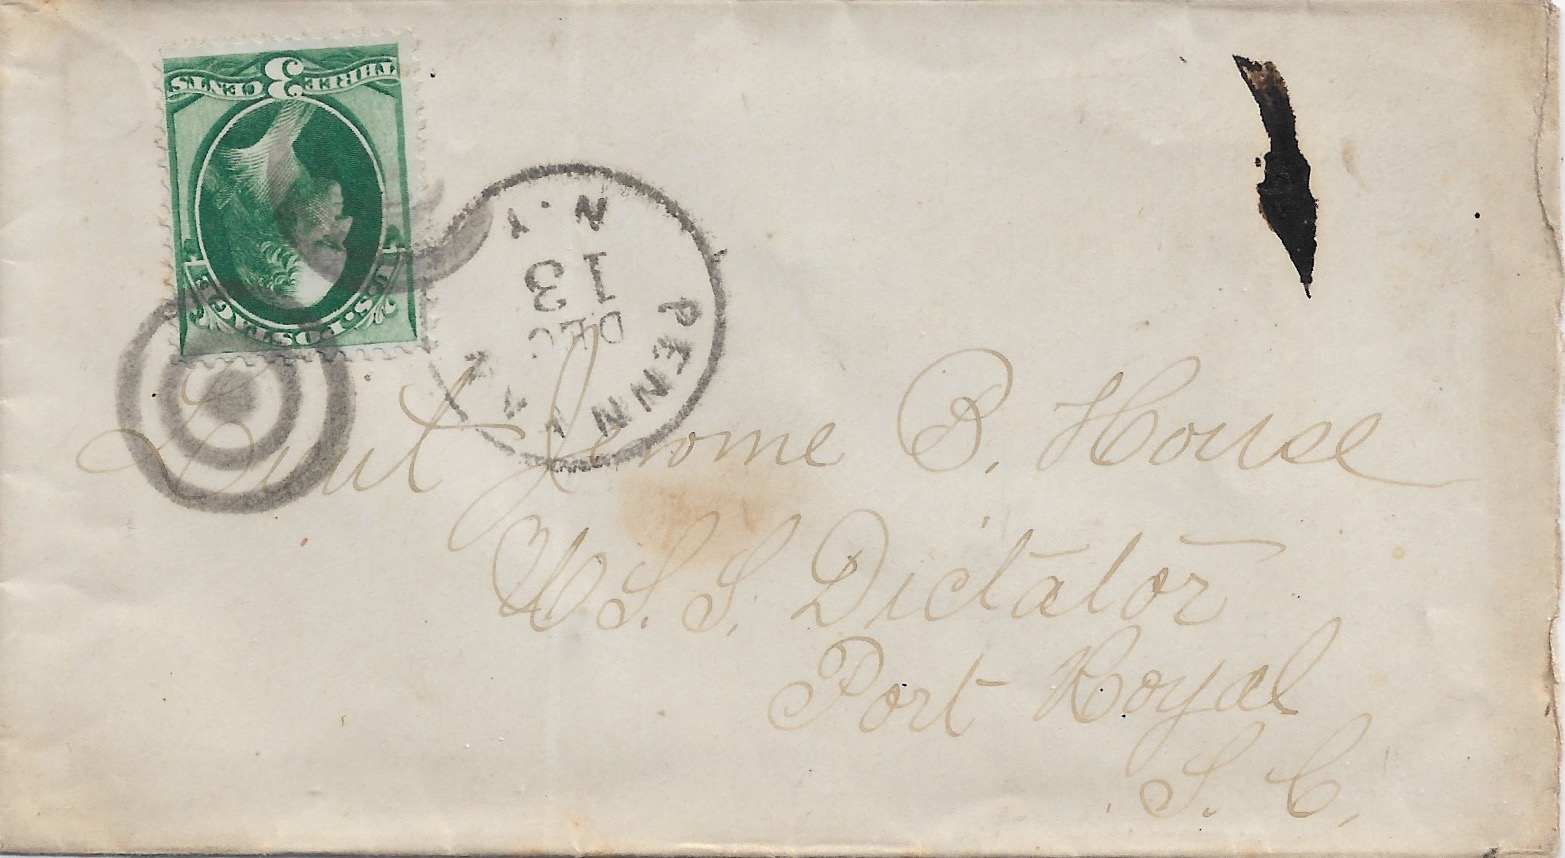 THREE 3 CENTS
U.S. POSTAGE
PENN YAN
DEC
13
N.Y.
Lieut Jerome B. House
U.S.S. Dictator
Port Royal
S.C.